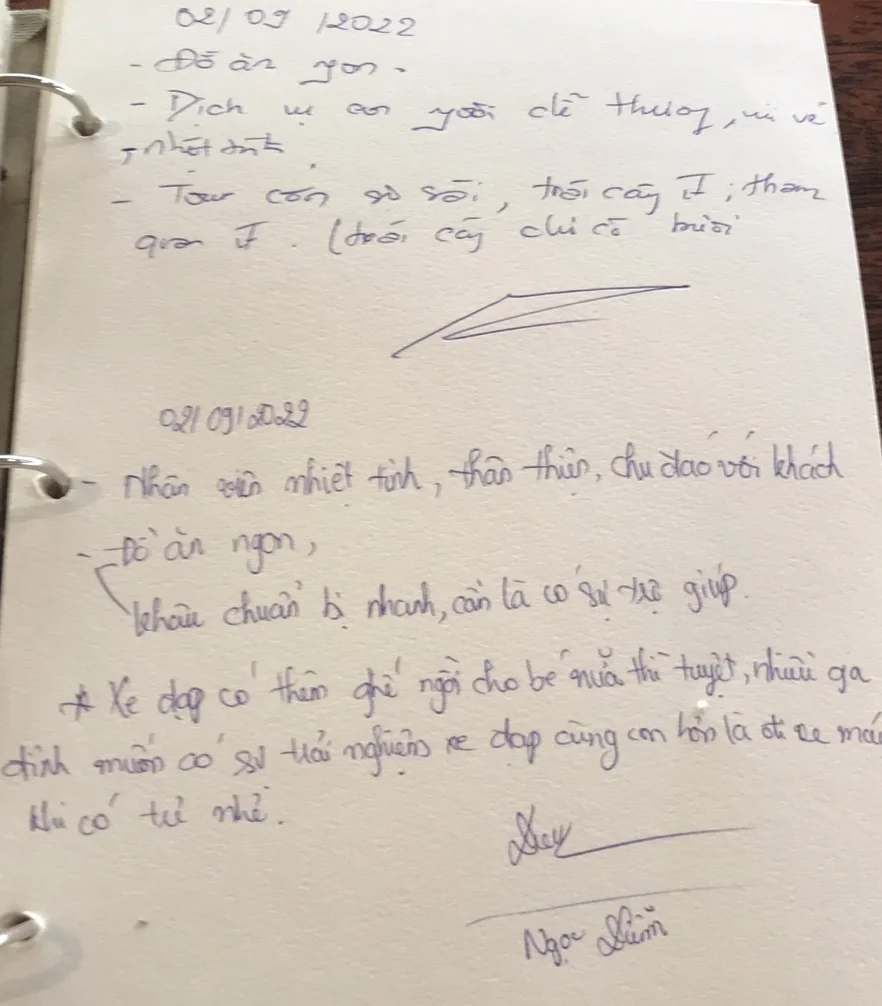 02/09/2022
- Đồ ăn ngon.
- Dịch vụ con người dễ thương, vui vẻ
, nhiệt tình.
- Tour còn sơ sài, trái cây ít; tham
quan ít. (trái cây chỉ có bưởi
02/09/2022
- Nhân viên nhiệt tình, thân thiện, chu đáo với khách
- Đồ ăn ngon,
khâu chuẩn bị nhanh, cần là có sự trợ giúp.
* Xe đạp có thêm ghế ngồi cho bé nữa thì tuyệt, nhiều gia
đình muốn có sự trải nghiệm xe đạp cùng con hơn là đi xe máy
khi có trẻ nhỏ.
Ngọc